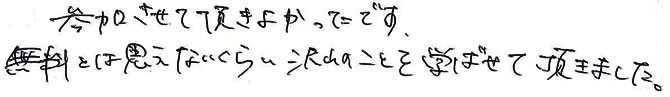 参加させて頂きよかったです。
無料とは思えないくらい沢山のことを学ばせて頂きました。